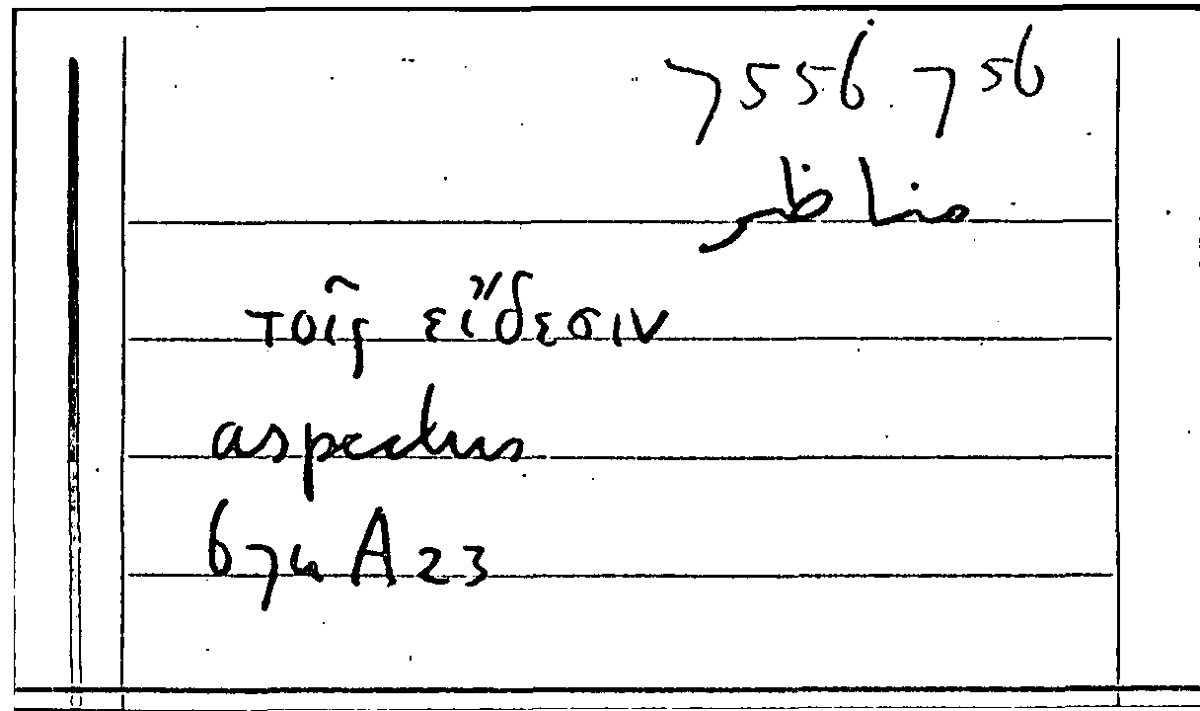 7556 756
مناظر
τοῖς εἴδεσιν
aspectus
674 A 23